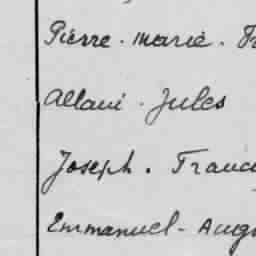 Pierre. Marie. Fr
Allain. Jules
Joseph. Franci
Emmanuel- Aug